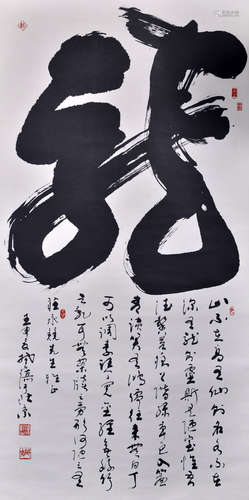 龍
山不在高有仙則名水不在
深有龍則靈斯是陋室惟吾
德馨苔痕上階綠草色入簾
青談笑有鴻儒往來無白丁
可以調素琴閱金經無絲竹
之亂耳無案牘之勞形何陋之有
先生雅正
壬申